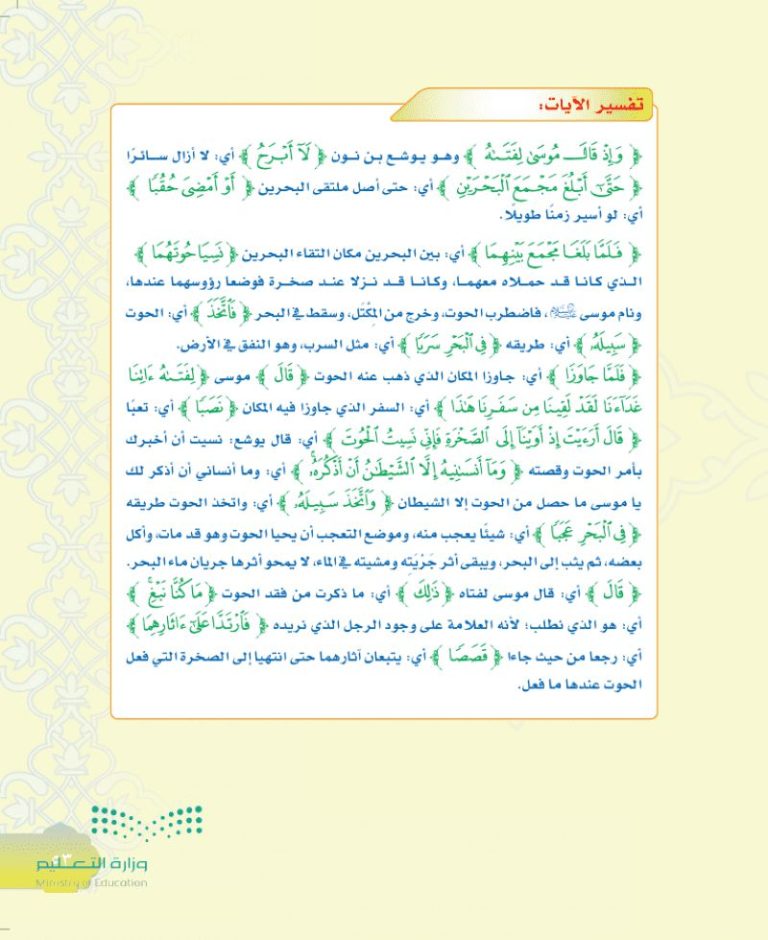 تفسير الآيات:
﴿ وَإِذْ قَالَ مُوسَىٰ لِفَتَىٰهُ ﴾ وهو يوشع بن نون ﴿ لَآ أَبْرَحُ ﴾ أي: لا أزال سائرًا
﴿ حَتَّىٰٓ أَبْلُغَ مَجْمَعَ ٱلْبَحْرَيْنِ ﴾ أي: حتى أصل ملتقى البحرين ﴿ أَوْ أَمْضِىَ حُقُبًا ﴾
أي: لو أسير زمنًا طويلًا.
﴿ فَلَمَّا بَلَغَا مَجْمَعَ بَيْنِهِمَا ﴾ أي: بين البحرين مكان التقاء البحرين ﴿ نَسِيَا حُوتَهُمَا ﴾
الذي كانا قد حملاه معهما، وكانا قد نزلا عند صخرة فوضعا رؤوسهما عندها،
ونام موسى ﷺ، فاضطرب الحوت، وخرج من المِكْتَل، وسقط في البحر ﴿ فَٱتَّخَذَ ﴾ أي: الحوت
﴿ سَبِيلَهُۥ ﴾ أي: طريقه ﴿ فِى ٱلْبَحْرِ سَرَبًا ﴾ أي: مثل السرب، وهو النفق في الأرض.
﴿ فَلَمَّا جَاوَزَا ﴾ أي: جاوزا المكان الذي ذهب عنه الحوت ﴿ قَالَ ﴾ موسى ﴿ لِفَتَىٰهُ ءَاتِنَا
غَدَآءَنَا لَقَدْ لَقِينَا مِن سَفَرِنَا هَٰذَا ﴾ أي: السفر الذي جاوزا فيه المكان ﴿ نَصَبًا ﴾ أي: تعبًا
﴿ قَالَ أَرَءَيْتَ إِذْ أَوَيْنَآ إِلَى ٱلصَّخْرَةِ فَإِنِّى نَسِيتُ ٱلْحُوتَ ﴾ أي: قال يوشع: نسيت أن أخبرك
بأمر الحوت وقصته ﴿ وَمَآ أَنسَىٰنِيهُ إِلَّا ٱلشَّيْطَٰنُ أَنْ أَذْكُرَهُۥ ﴾ أي: وما أنساني أن أذكر لك
يا موسى ما حصل من الحوت إلا الشيطان ﴿ وَٱتَّخَذَ سَبِيلَهُۥ ﴾ أي: واتخذ الحوت طريقه
﴿ فِى ٱلْبَحْرِ عَجَبًا ﴾ أي: شيئًا يعجب منه، وموضع التعجب أن يحيا الحوت وهو قد مات، وأكل
بعضه، ثم يثب إلى البحر، ويبقى أثر جَرْيَته ومشيته في الماء، لا يمحو أثرها جريان ماء البحر.
﴿ قَالَ ﴾ أي: قال موسى لفتاه ﴿ ذَٰلِكَ ﴾ أي: ما ذكرت من فقد الحوت ﴿ مَا كُنَّا نَبْغِ ﴾
أي: هو الذي نطلب؛ لأنه العلامة على وجود الرجل الذي نريده ﴿ فَٱرْتَدَّا عَلَىٰٓ ءَاثَارِهِمَا ﴾
أي: رجعا من حيث جاءا ﴿ قَصَصًا ﴾ أي: يتبعان آثارهما حتى انتهيا إلى الصخرة التي فعل
الحوت عندها ما فعل.
وزارة التعليم
Ministry of Education